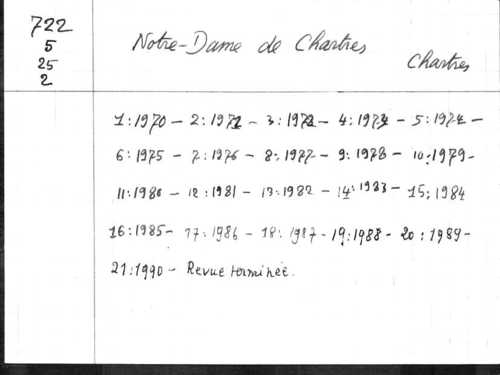 722
5
25
2
Notre-Dame de Chartres
Chartres
1:1970 - 2:1971 - 3:1972 - 4:1973 - 5:1974 -
6:1975 - 7:1976 - 8:1977 - 9:1978 - 10:1979 -
11:1980 - 12:1981 - 13:1982 - 14:1983 - 15:1984
16:1985 - 17:1986 - 18:1987 - 19:1988 - 20:1989 -
21:1990 - Revue terminée.